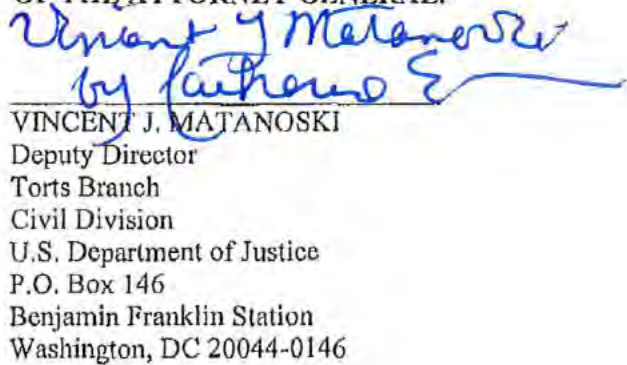 OF THE ATTORNEY GENERAL:
Vincent J Matanoski
by
VINCENT J. MATANOSKI
Deputy Director
Torts Branch
Civil Division
U.S. Department of Justice
P.O. Box 146
Benjamin Franklin Station
Washington, DC 20044-0146